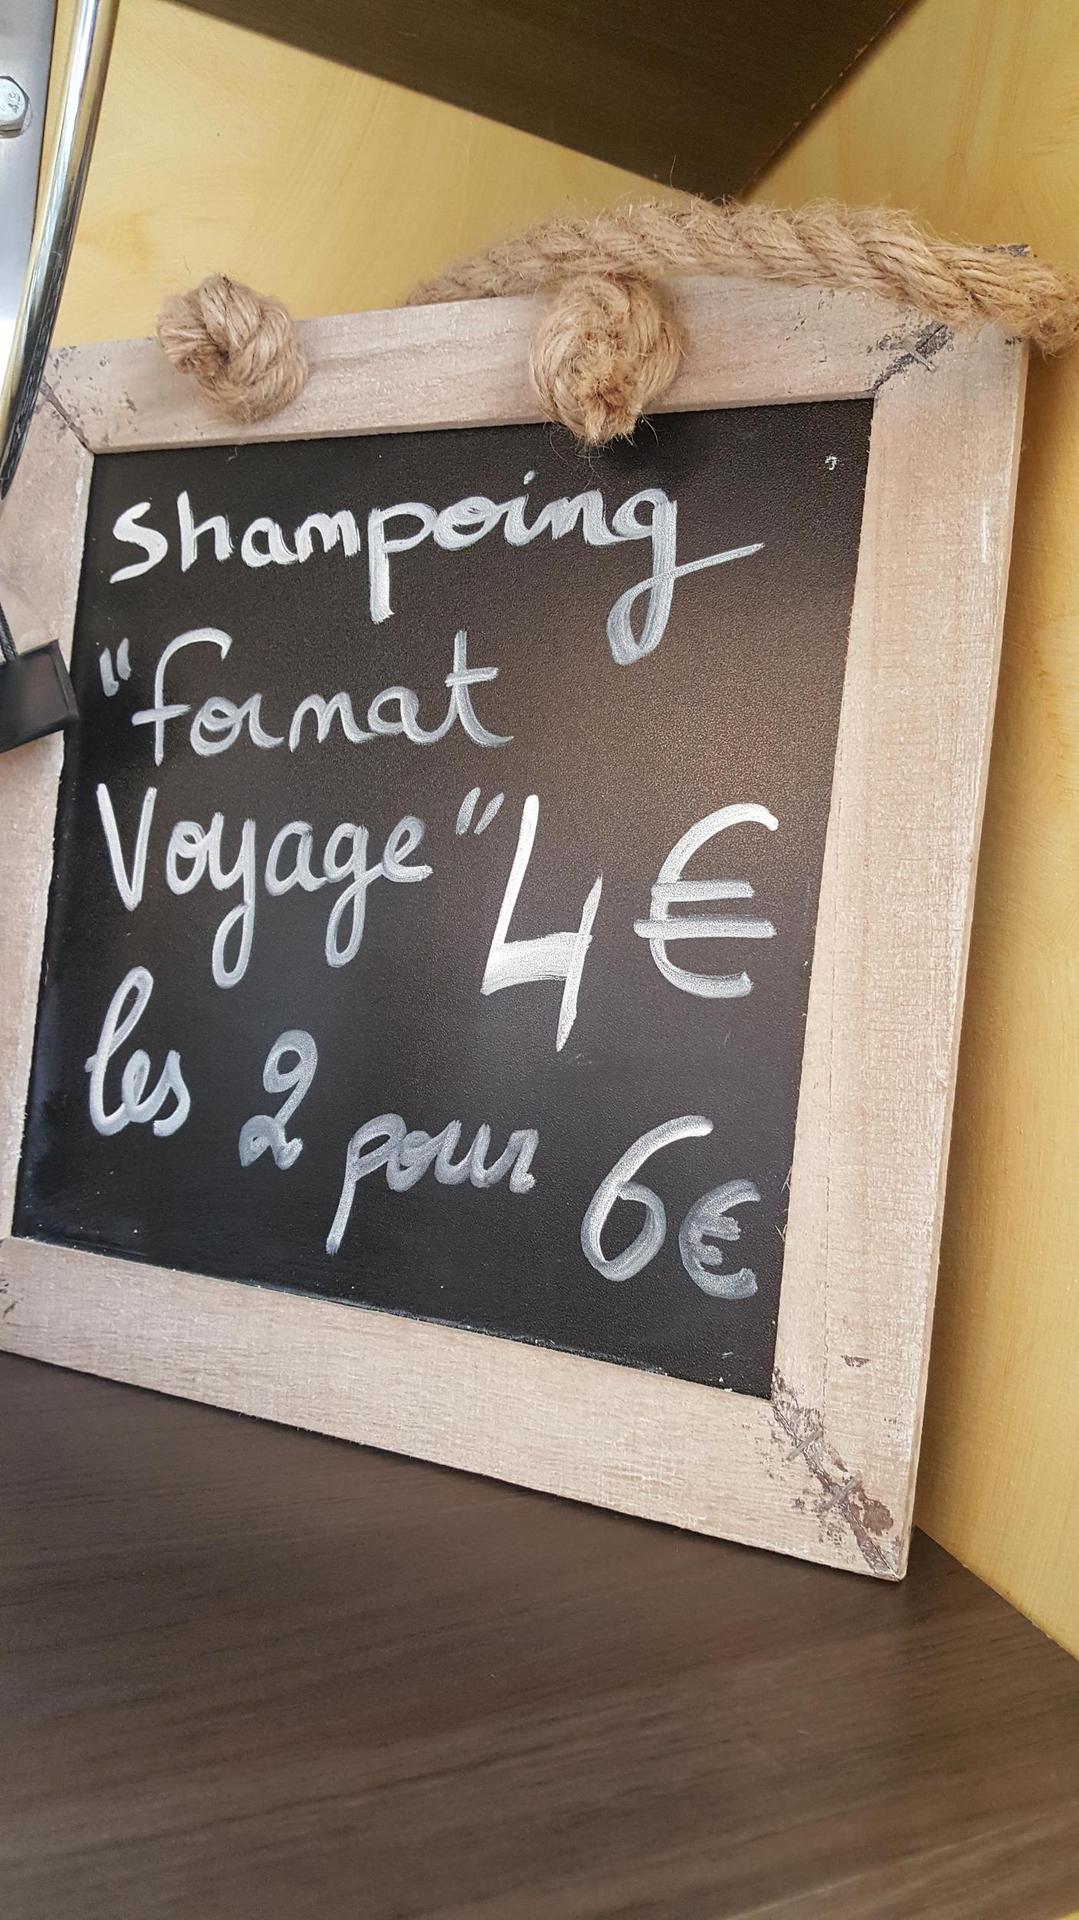 Shampoing
"format
Voyage" 4€
les 2 pour 6€